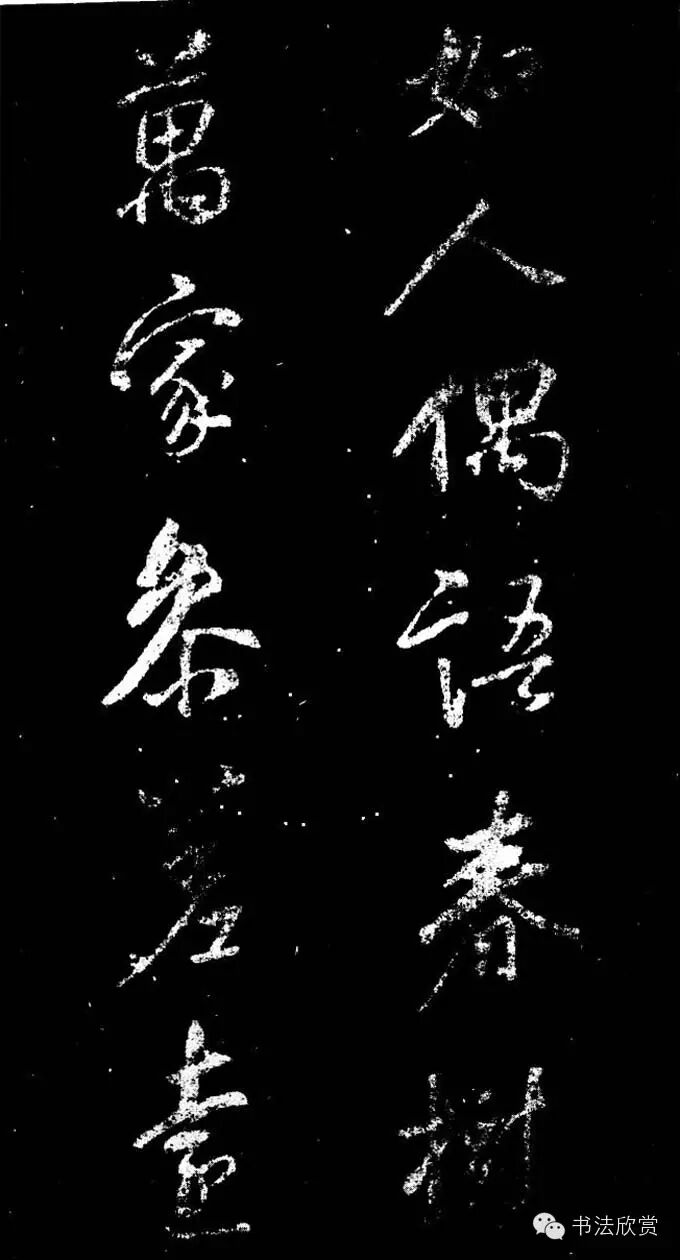 如人偶語春樹
萬家參差
书法欣赏